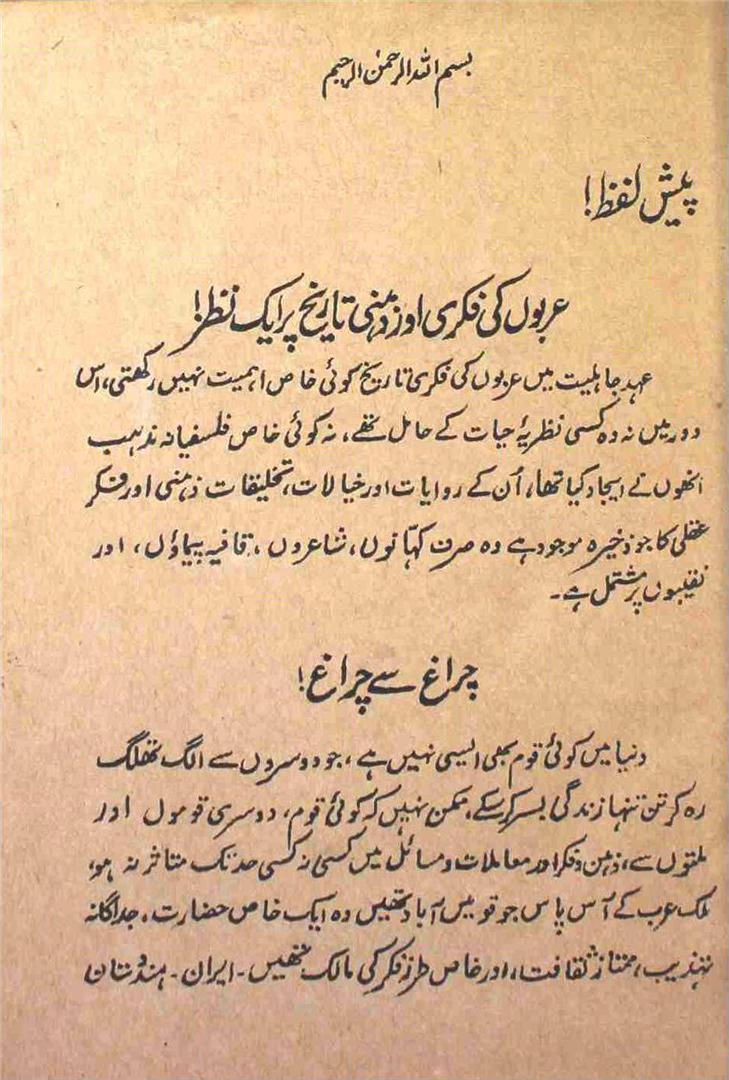 بسم اللہ الرحمٰن الرحیم
پیش لفظ!
عربوں کی فکری اور ذہنی تاریخ پر ایک نظر!
عہد جاہلیت میں عربوں کی فکری تاریخ کوئی خاص اہمیت نہیں رکھتی، اس
دور میں نہ وہ کسی نظریۂ حیات کے حامل تھے، نہ کوئی خاص فلسفیانہ مذہب
انھوں نے ایجاد کیا تھا، اُن کے روایات اور خیالات، تخلیقات ذہنی اور فکر
عقلی کا جو ذخیرہ موجود ہے وہ صرف کہانوں، شاعروں، قافیہ پیماؤں، اور
نقیبوں پر مشتمل ہے۔
چراغ سے چراغ!
دنیا میں کوئی قوم بھی ایسی نہیں ہے، جو دوسروں سے الگ تھلگ
رہ کر تن تنہا زندگی بسر کر سکے، ممکن نہیں کہ کوئی قوم، دوسری قوموں اور
ملتوں سے، ذہن و فکر اور معاملات و مسائل میں کسی نہ کسی حد تک متاثر نہ ہو،
ملک عرب کے آس پاس جو قومیں آباد تھیں وہ ایک خاص حضارت، جداگانہ
تہذیب، ممتاز ثقافت، اور خاص طرز فکر کی مالک تھیں۔ ایران۔ ہندوستان